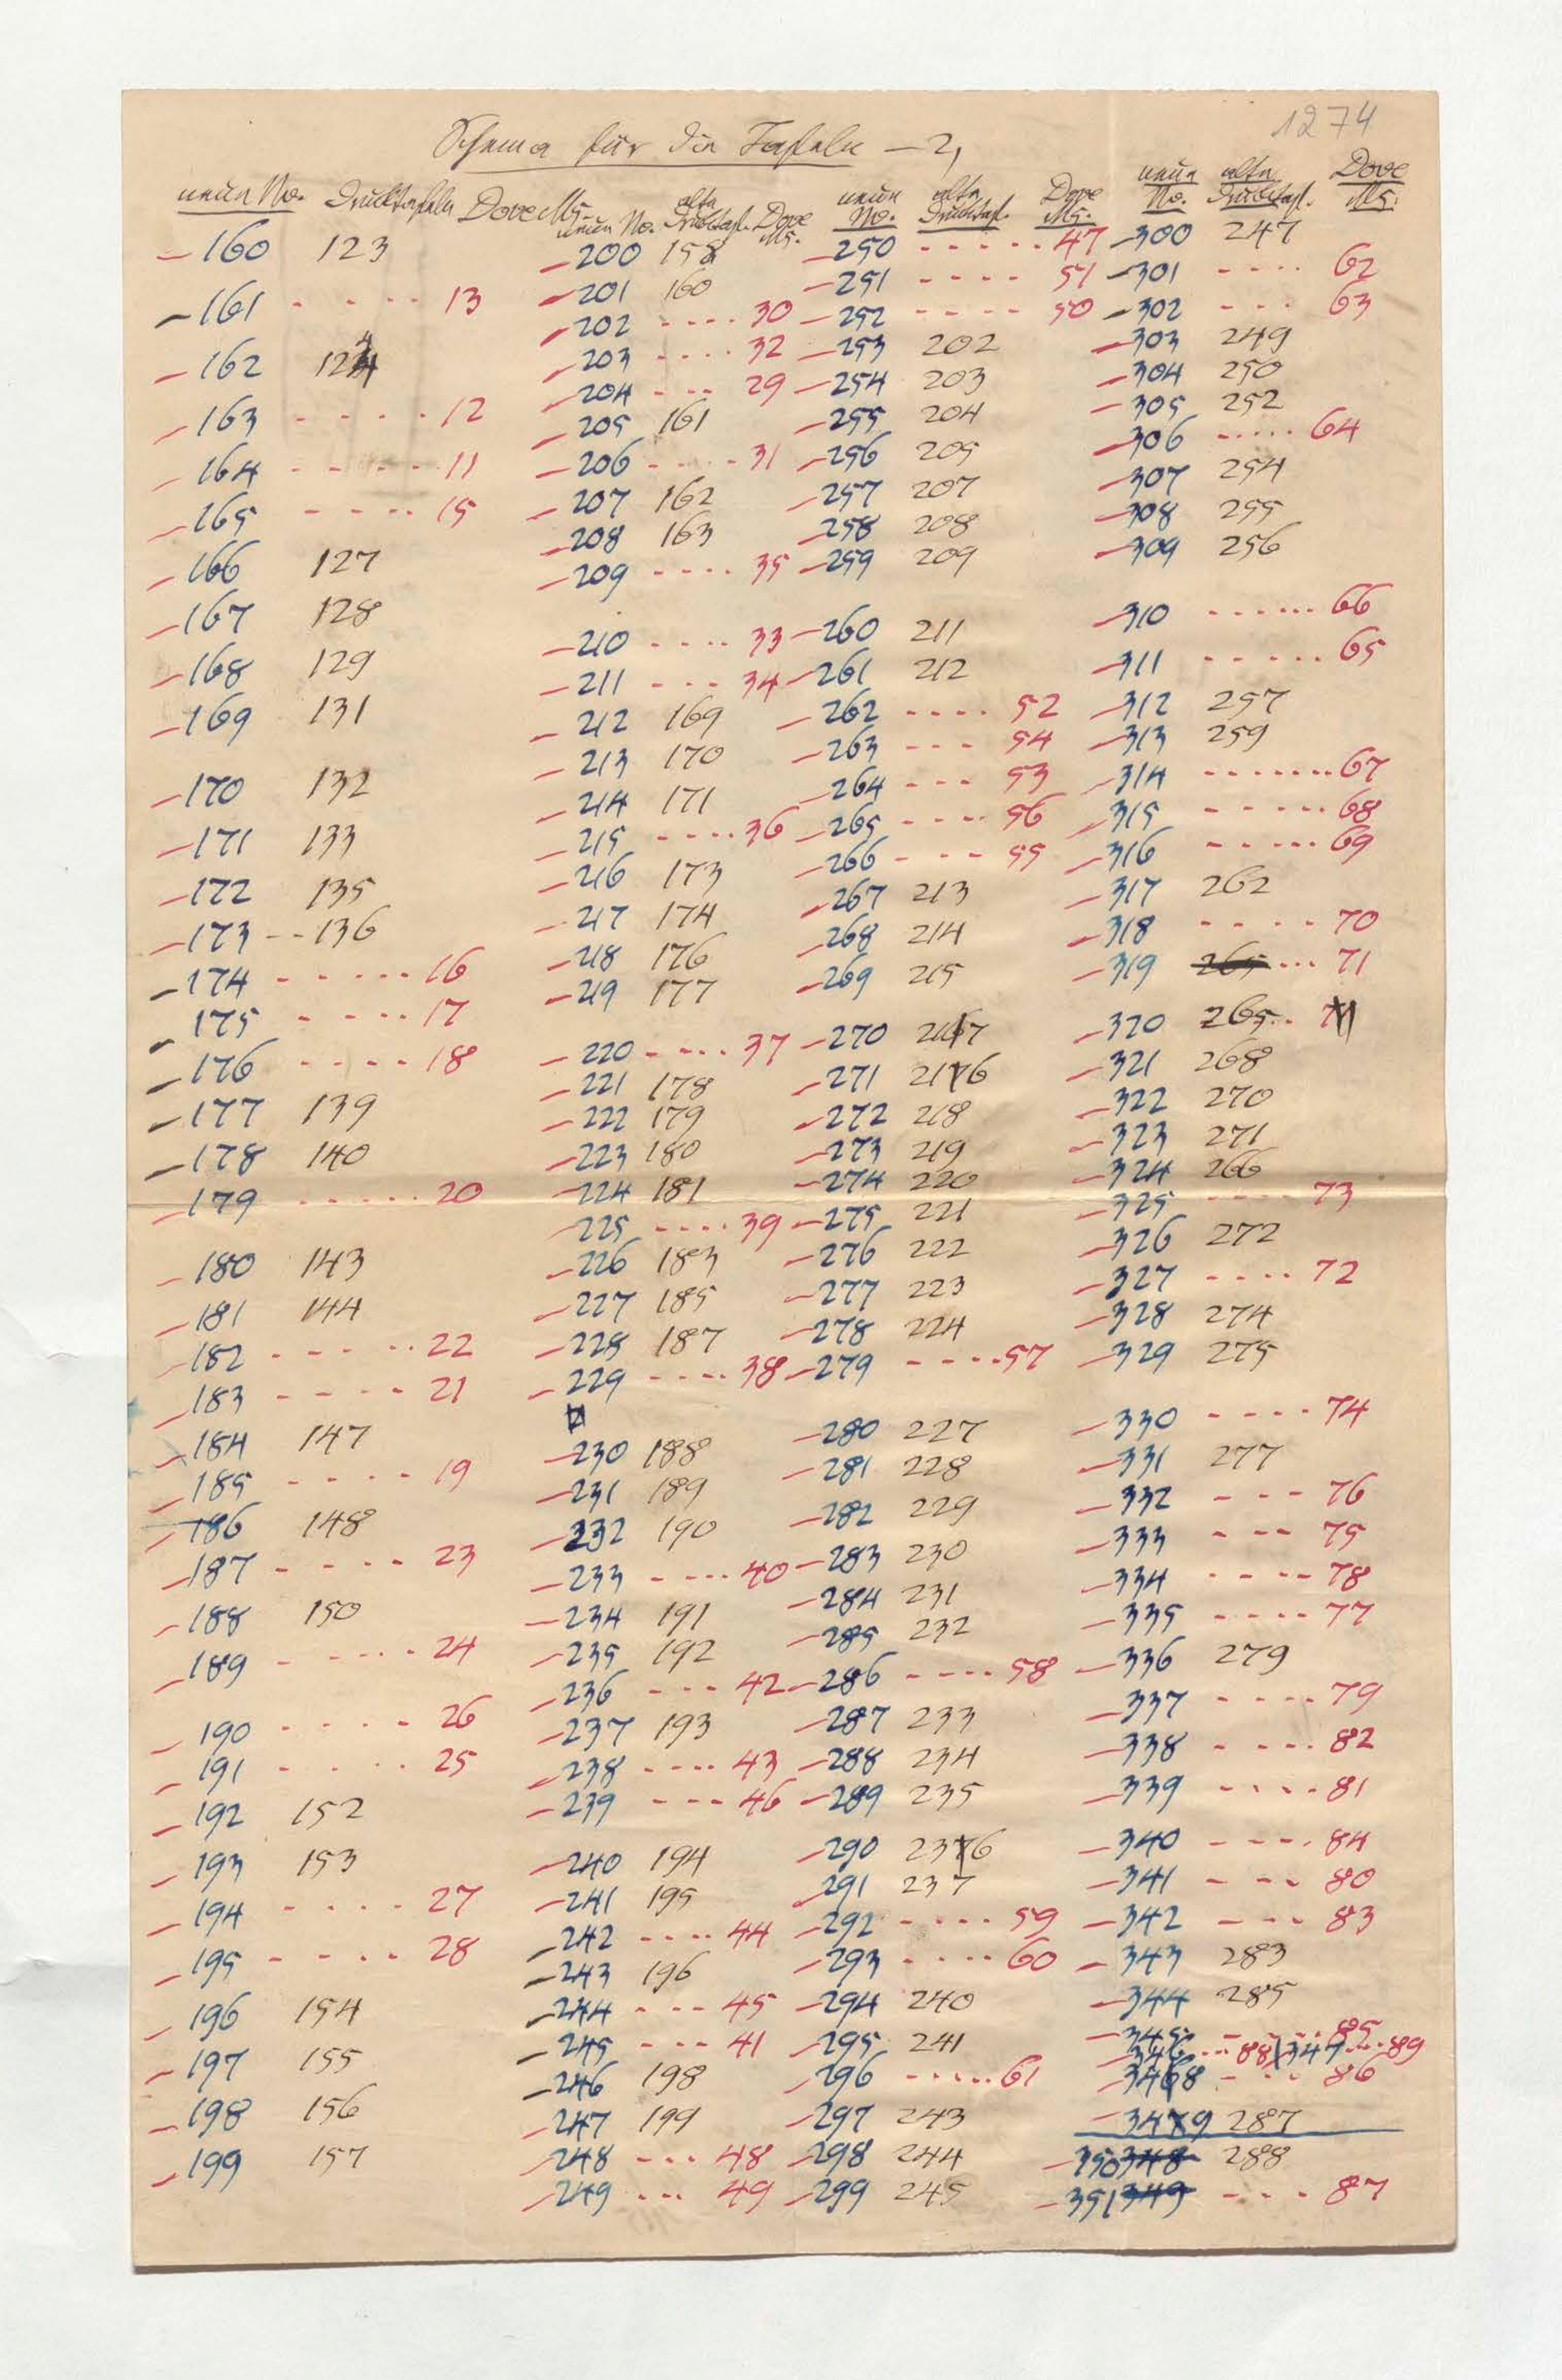 1274
Schema für die Tafeln – 2,
neue No. Drucktafeln Dove Ms.
– 160 123
– 161 - - - - 13
– 162 124
– 163 - - - - 12
– 164 - - - - - 11
– 165 - - - - 15
– 166 127
– 167 128
– 168 129
– 169 131
– 170 132
– 171 133
– 172 135
– 173 - - 136
– 174 - - - - - 16
– 175 - - - - 17
– 176 - - - - 18
– 177 139
– 178 140
– 179 - - - - - 20
– 180 143
– 181 144
– 182 - - - - - 22
– 183 - - - - 21
– 184 147
– 185 - - - - 19
– 186 148
– 187 - - - - 23
– 188 150
– 189 - - - - 24
– 190 - - - - 26
– 191 - - - - 25
– 192 152
– 193 153
– 194 - - - - 27
– 195 - - - - 28
– 196 154
– 197 155
– 198 156
– 199 157
neue No. alte Drucktaf. Dove Ms.
– 200 158
– 201 160
– 202 - - - - 30
– 203 - - - - 32
– 204 - - - 29
– 205 161
– 206 - - - - 31
– 207 162
– 208 163
– 209 - - - - 35
– 210 - - - - 33
– 211 - - - 34
– 212 169
– 213 170
– 214 171
– 215 - - - - 36
– 216 173
– 217 174
– 218 176
– 219 177
– 220 - - - - 37
– 221 178
– 222 179
– 223 180
– 224 181
– 225 - - - - 39
– 226 183
– 227 185
– 228 187
– 229 - - - - 38
– 230 188
– 231 189
– 232 190
– 233 - - - - 40
– 234 191
– 235 192
– 236 - - - 42
– 237 193
– 238 - - - - 43
– 239 - - - 46
– 240 194
– 241 195
– 242 - - - - 44
– 243 196
– 244 - - - 45
– 245 - - - 41
– 246 198
– 247 199
– 248 - - - 48
– 249 - - - 49
neue No. alte Drucktaf. Dove Ms.
– 250 - - - - - 47
– 251 - - - - 51
– 252 - - - - 50
– 253 202
– 254 203
– 255 204
– 256 205
– 257 207
– 258 208
– 259 209
– 260 211
– 261 212
– 262 - - - - 52
– 263 - - - 54
– 264 - - - 53
– 265 - - - - 56
– 266 - - - 55
– 267 213
– 268 214
– 269 215
– 270 217
– 271 216
– 272 218
– 273 219
– 274 220
– 275 221
– 276 222
– 277 223
– 278 224
– 279 - - - - 57
– 280 227
– 281 228
– 282 229
– 283 230
– 284 231
– 285 232
– 286 - - - - 58
– 287 233
– 288 234
– 289 235
– 290 236
– 291 237
– 292 - - - - 59
– 293 - - - - 60
– 294 240
– 295 241
– 296 - - - - - 61
– 297 243
– 298 244
– 299 245
neue No. alte Drucktaf. Dove Ms.
– 300 247
– 301 - - - - 62
– 302 - - - 63
– 303 249
– 304 250
– 305 252
– 306 - - - - - 64
– 307 254
– 308 255
– 309 256
– 310 - - - - - - 66
– 311 - - - - - 65
– 312 257
– 313 259
– 314 - - - - - - - 67
– 315 - - - - - 68
– 316 - - - - - 69
– 317 262
– 318 - - - - 70
– 319 265 - - - 71
– 320 265
– 321 268
– 322 270
– 323 271
– 324 266
– 325 - - - - 73
– 326 272
– 327 - - - - 72
– 328 274
– 329 275
– 330 - - - - 74
– 331 277
– 332 - - - 76
– 333 - - - 75
– 334 - - - - 78
– 335 - - - - 77
– 336 279
– 337 - - - - 79
– 338 - - - - 82
– 339 - - - - 81
– 340 - - - - 84
– 341 - - - 80
– 342 - - - 83
– 343 283
– 344 285
– 345 - - - 85
– 346 - - - 88 | 347 - - - 89
– 348 - - - 86
– 349 287
– 350 348 288
– 351 349 - - - - 87